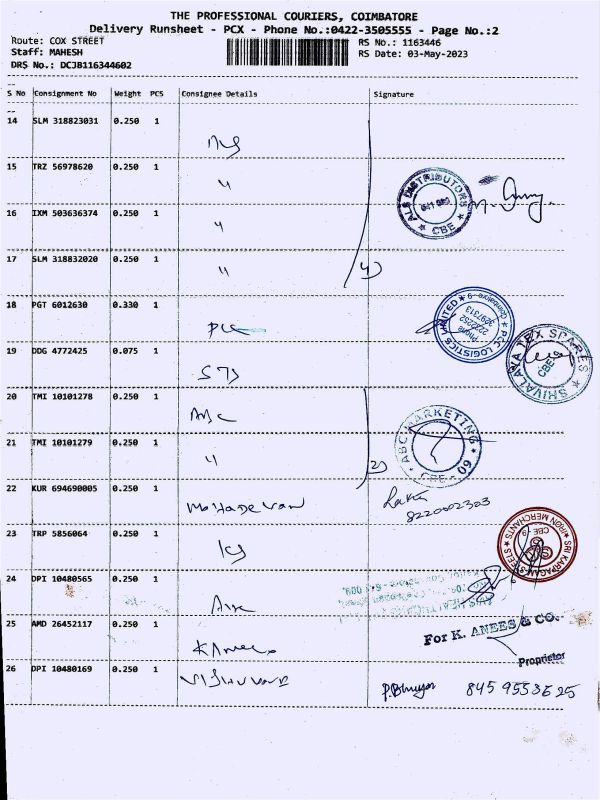 THE PROFESSIONAL COURIERS, COIMBATORE
Delivery Runsheet - PCX - Phone No.:0422-3505555 - Page No.:2
Route: COX STREET RS No.: 1163446
Staff: MAHESH RS Date: 03-May-2023
DRS No.: DCJB116344602
S No Consignment No Weight PCS Consignee Details Signature
14 SLM 318823031 0.250 1
15 TRZ 56978620 0.250 1 "
ALS DISTRIBUTORS CBE
16 IXM 503636374 0.250 1 "
17 SLM 318832020 0.250 1 " 4)
18 PGT 6012630 0.330 1 PCC
PCC LOGISTICS UNITED Phone 2232252 3297313 Coimbatore-9
SHIVALAYA TEX SPARES CBE
19 DDG 4772425 0.075 1
20 TMI 10101278 0.250 1 ABC
ABC MARKETING CBE - 09
21 TMI 10101279 0.250 1 " 2)
22 KUR 694690005 0.250 1 Mahadevan
8220002303
23 TRP 5856064 0.250 1
SRI KARPAGAM STEELS IRON MERCHANTS CBE -9 SKS
24 DPI 10480565 0.250 1
25 AMD 26452117 0.250 1 K Anees
For K. ANEES & CO.
Proprietor
26 DPI 10480169 0.250 1